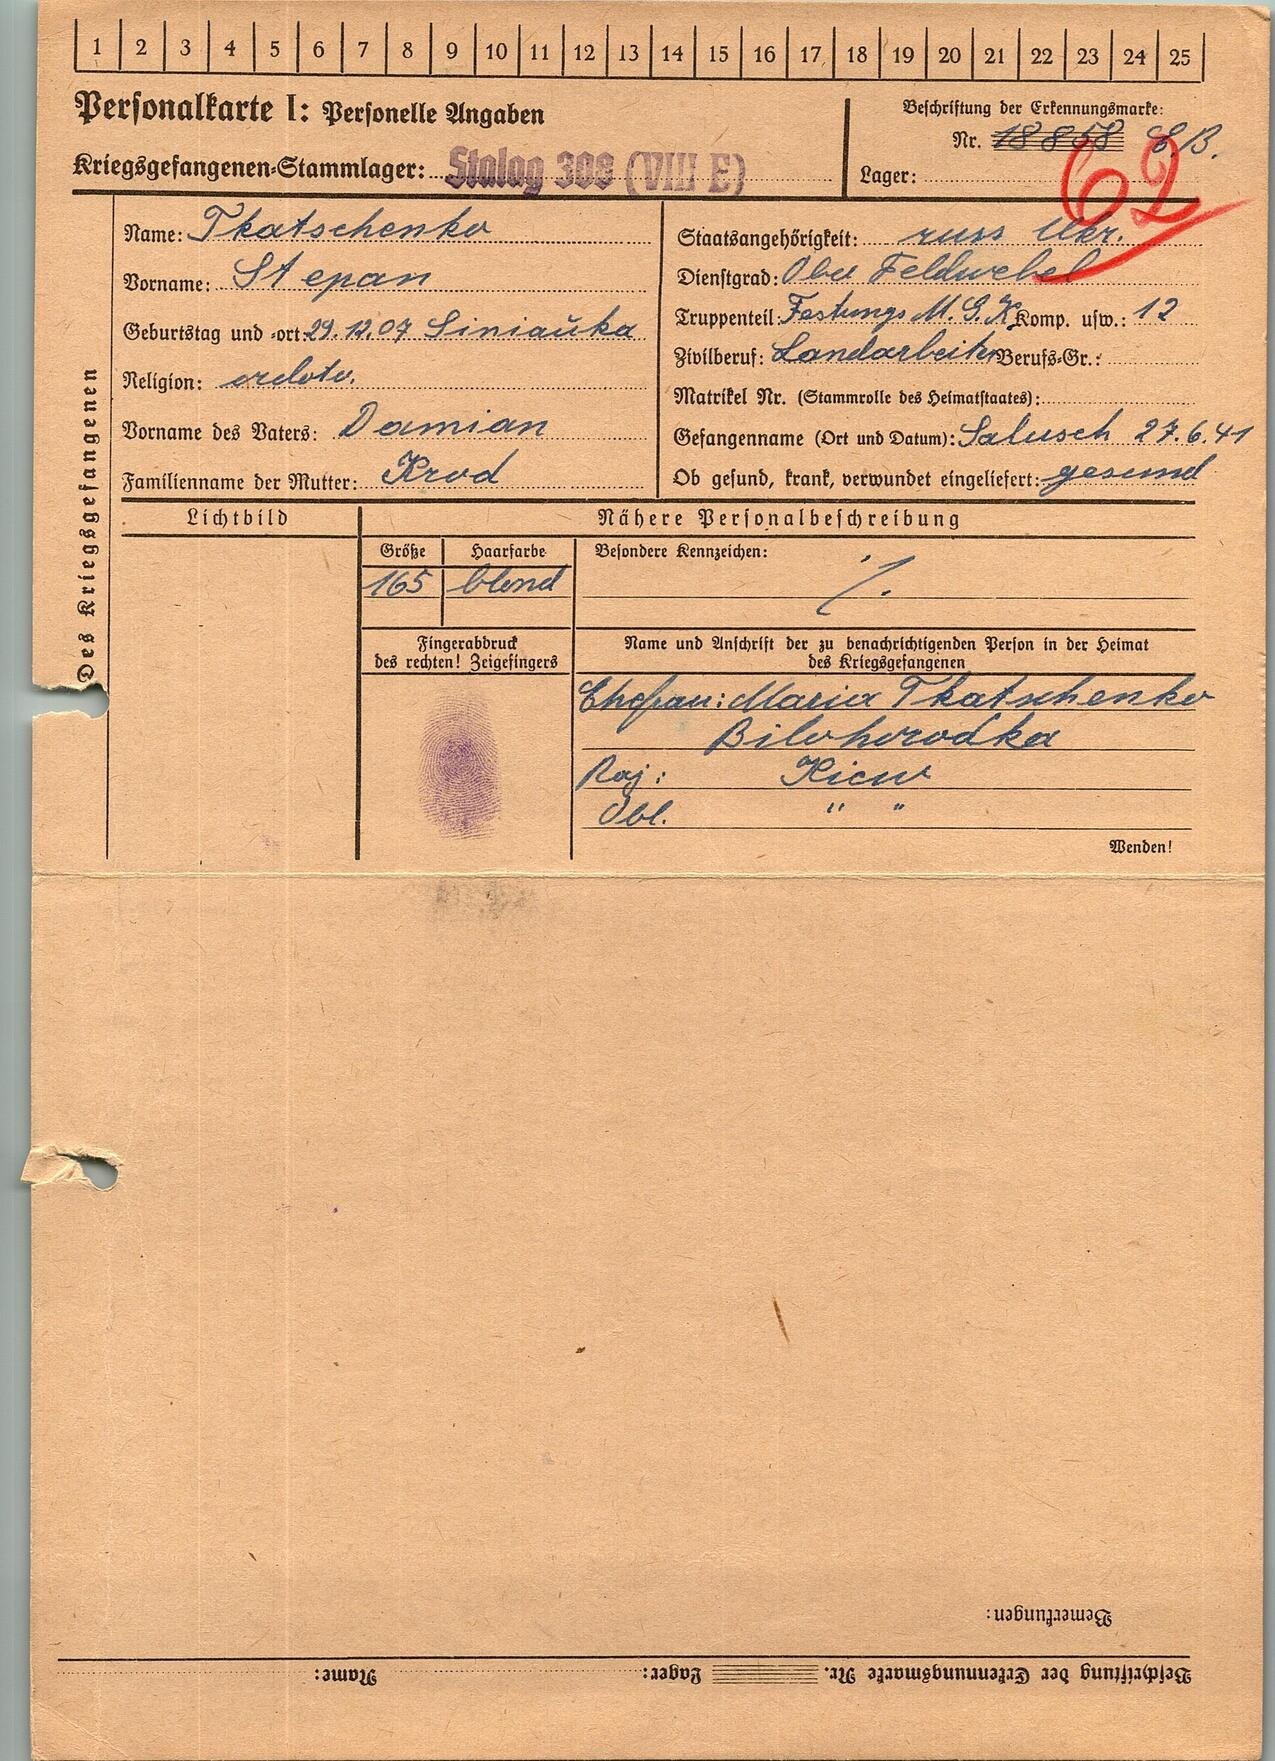 1 2 3 4 5 6 7 8 9 10 11 12 13 14 15 16 17 18 19 20 21 22 23 24 25
Personalkarte I: Personelle Angaben
Kriegsgefangenen-Stammlager: Stalag 308 (VIII E)
Beschriftung der Erkennungsmarke:
Nr. 18858
Lager:
62
des Kriegsgefangenen
Name: Tkatschenko
Vorname: Stepan
Geburtstag und -ort: 29.12.07 Siniaŭka
Religion:
Vorname des Vaters: Damian
Familienname der Mutter: Krod
Staatsangehörigkeit: russ Ukr.
Dienstgrad: Ober Feldwebel
Truppenteil: Festungs M.G.K Komp. usw.: 12
Zivilberuf: Landarbeiter Berufs-Gr.:
Matrikel Nr. (Stammrolle des Heimatstaates):
Gefangenname (Ort und Datum): Salusch 27.6.41
Ob gesund, krank, verwundet eingeliefert: gesund
Lichtbild
Nähere Personalbeschreibung
Größe Haarfarbe Besondere Kennzeichen:
165 blond ./.
Fingerabdruck
des rechten! Zeigefingers
Name und Anschrift der zu benachrichtigenden Person in der Heimat
des Kriegsgefangenen
Ehefrau: Maria Tkatschenko
Bilohorodka
Raj: Kiew
Obl. " "
Wenden!
Bemerkungen:
Beschriftung der Erkennungsmarke Nr. Lager: Name: